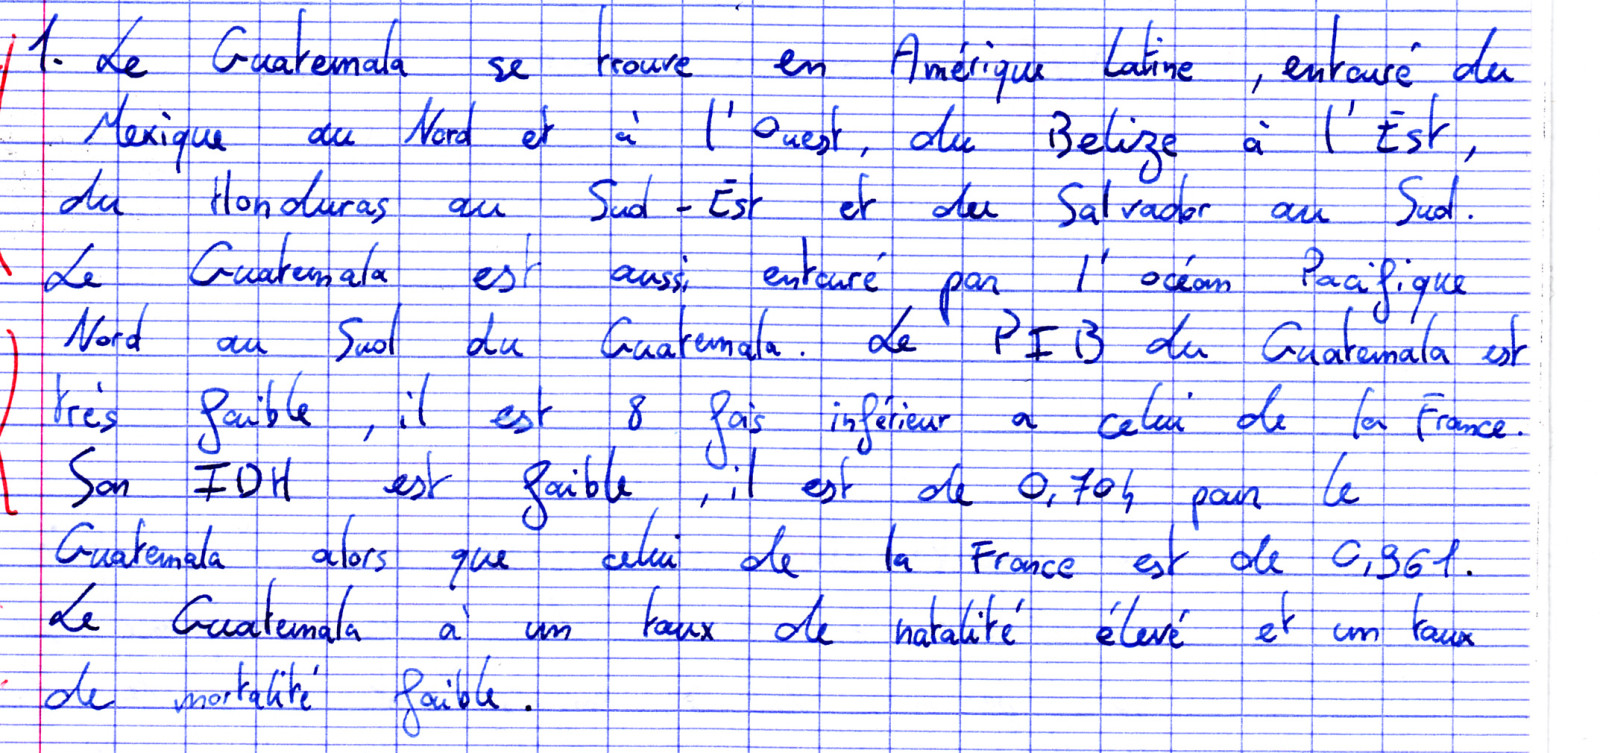 1. Le Guatemala se trouve en Amérique Latine, entouré du
Mexique au Nord et à l'Ouest, du Belize à l'Est,
du Honduras au Sud-Est et du Salvador au Sud.
Le Guatemala est aussi entouré par l'océan Pacifique
Nord au Sud du Guatemala. Le PIB du Guatemala est
très faible, il est 8 fois inférieur a celui de la France.
Son IDH est faible, il est de 0,704 pour le
Guatemala alors que celui de la France est de 0,961.
Le Guatemala à un taux de natalité élevé et un taux
de mortalité faible.